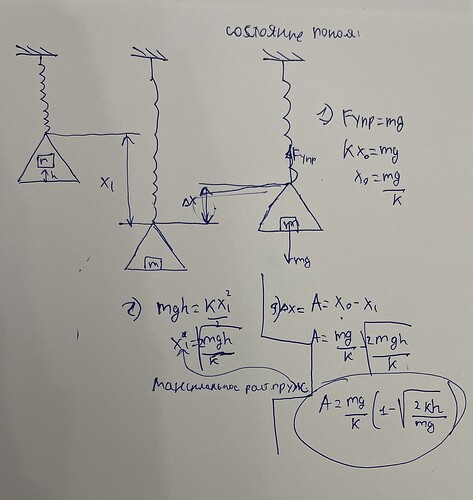 состояние покоя:
m
h
X₁
m
Δx
Fупр
m
mg
1) Fупр = mg
Kx₀ = mg
x₀ = mg/K
2) mgh = Kx₁²/2
x₁² = √(2mgh/K)
Максимальное раст. пруж
3) Δx = A = x₀ - x₁
A = mg/K √(2mgh/K)
A = mg/K (1 - √(2kh/mg))